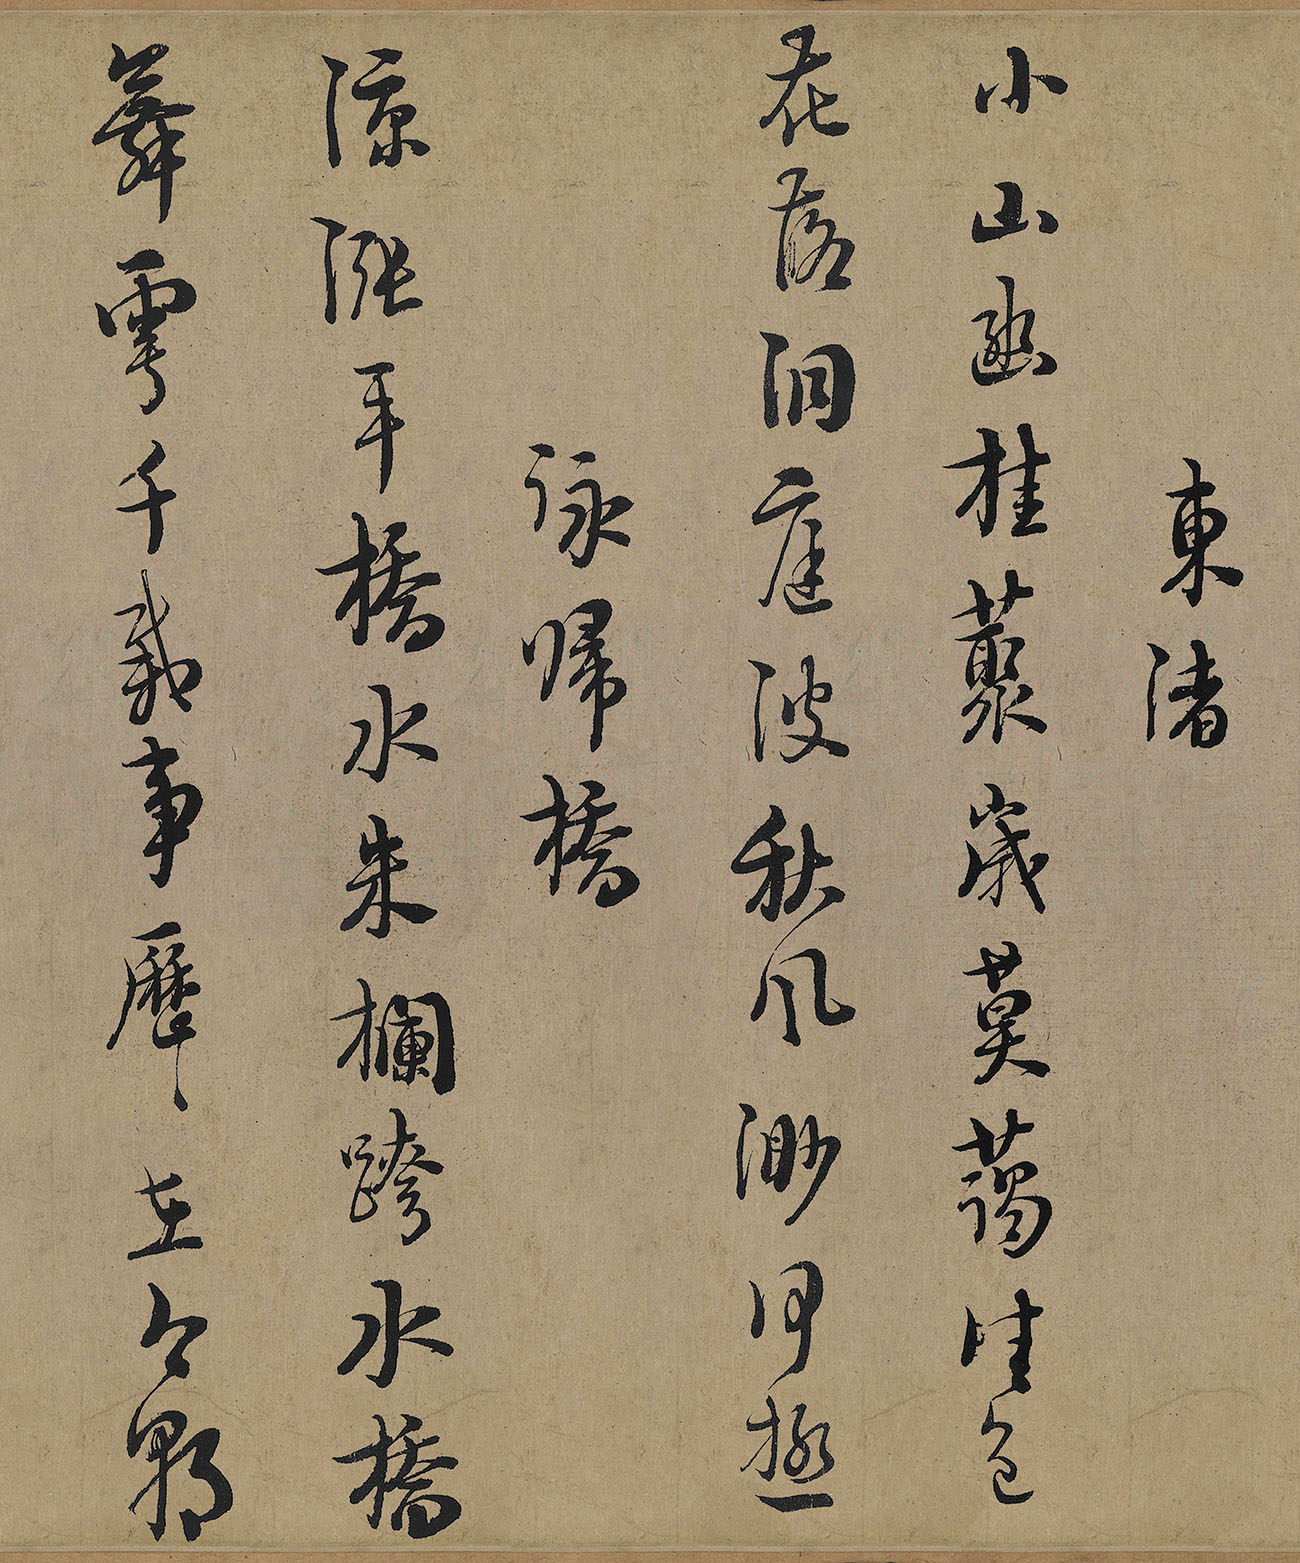 東渚
小山幽桂藂歲莫藹佳色
花落洞庭波秋風渺何極
詠歸橋
渌漲平橋水朱欄跨水橋
舞雩千載事歷〻在今朝